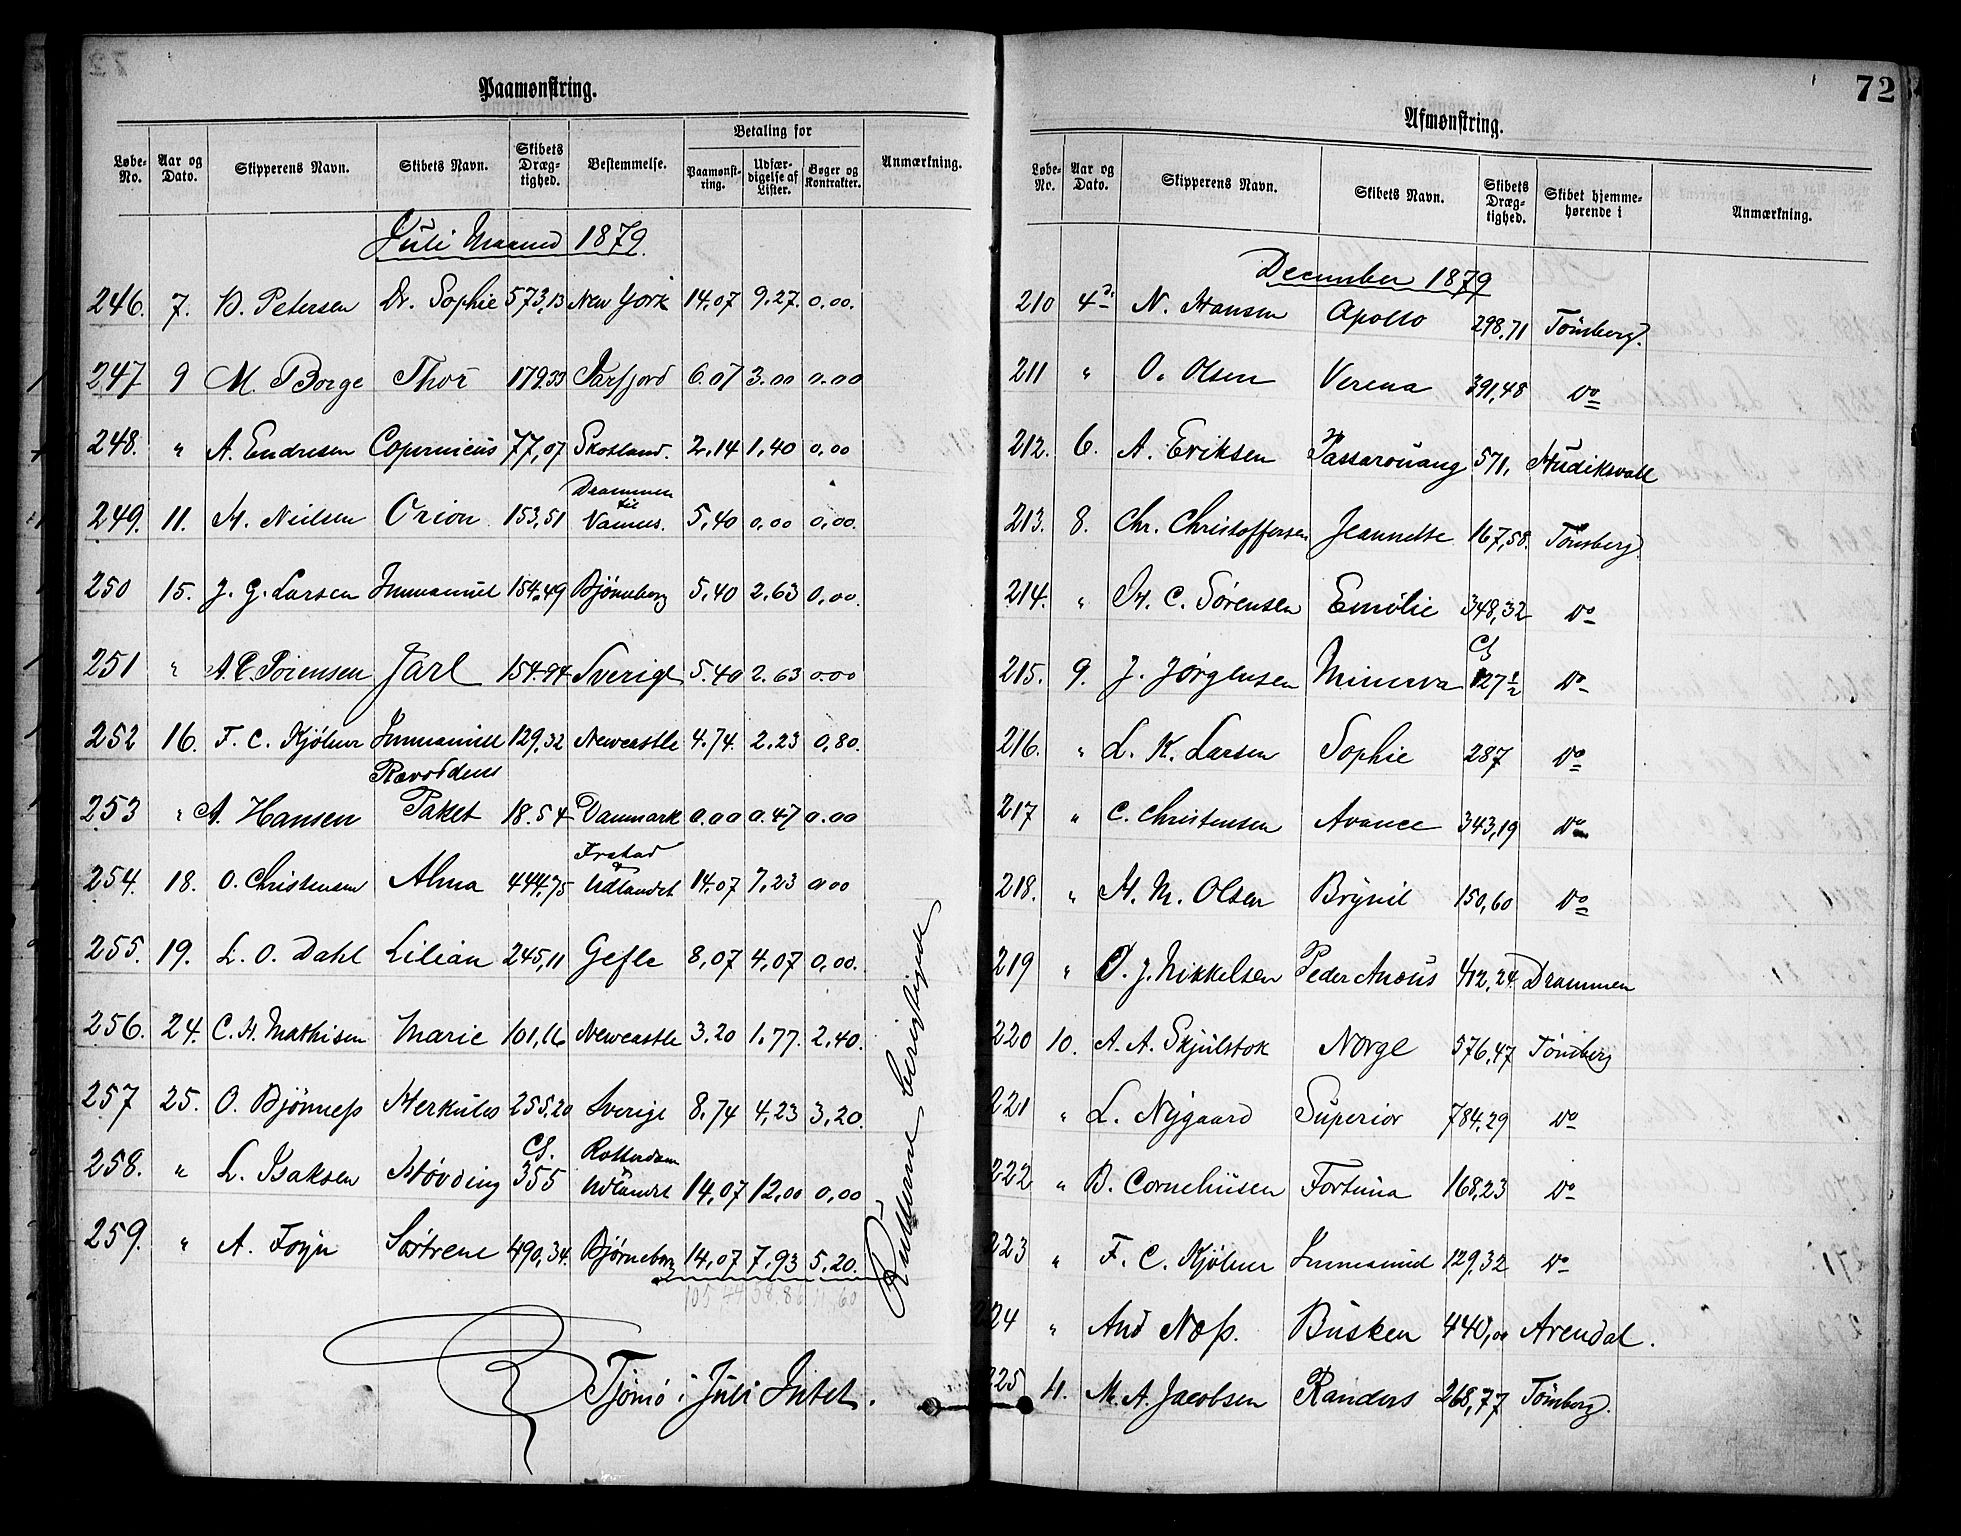 Paamønstring.
Løbe-No. Aar og Dato. Skipperens Navn. Skibets Navn. Skibets Dræg-tighed. Bestemmelse. Betaling for Paamønst-ring. Udfær-digelse af Lister. Bøger og Kontrakter. Anmærkning.
Juli Maaned 1879.
246. 7. Petersen Dr. Sophie 573,13 New York 14.07 9.27. 0.00.
247 9 M. Borge Thor 179.33 Jarfjord 6.07 3.00 0.00
248. " A. Endresen Copernicus 77,07 Skotland. 2.14 1.40 0,00
249. 11. H. Neilsen Orion 153,51 Drammen til 5,40 0,00 0,00.
250 15. J. G. Larsen Immanuel 154.49 Bjørneborg 5,40 2.63 0,00.
251 " A. C. Sørensen Jarl 154.94 Sverige 5.40 2.63 0.00
252 16. F. C. Kjølner Immanuel 129,32 Newcastle 4.74. 2.23 0,80.
253 " A. Hansen Rævoddens Paket 18.54 Danmark 0.00 0.47 0.00
254. 18. O. Christensen Alma 444.75 Frstad & Udlandet 14.07 7.23 0.00
255. 19. L. O. Dahl Lilian 245,11 Gefle 8,07 4,07 0,00.
256. 24. C. H. Mathisen Marie 101,16 Newcastle 3.20 1.77. 2,40.
257 25. O. Bjønness Herkules 255.20 Sverige 8.74 4,23 3,20.
258. " L. Isaksen Høvding Cl. 355 Rotterdam Udlandet 14,07 12,00 0,00
259. " A. Foyn Søstrene 490,34. Bjørneborg 14,07 7,93 5,20.
58.86 11,60
Tjømø i Juli Intet.
Afmønstring.
72
Løbe-No. Aar og Dato. Skipperens Navn. Skibets Navn. Skibets Dræg-tighed. Skibet hjemme-hørende i Anmærkning.
December 1879
210 4de N. Hansen Apollo 298.71 Tønsberg.
211 " O. Olsen Verena 391,48 Do
212. 6. A. Eriksen Passarouang 571. Hudiksvall
213. 8. Chr. Christoffersen Jeannette 167,58. Tønsberg
214. " H. C. Sørensen Emilie 348,32 Do
215. 9. J. Jørgensen Minerva Cl 127½ Do
216. " L. K. Larsen Sophie 287 Do
217 " C. Christensen Avance 343,19 Do
218. " H. M. Olsen Brynil 150,60 Do
219 " O. J. Mikkelsen Peder Ancus 412,24 Drammen
220 10. A. A. Skjulstok Norge 576,47 Tønsberg
221 " L. Nygaard Superior 784.29 Do
222 " B. Corneliusen Fortuna 168,23 Do
223 " F. C. Kjølner Immanuel 129,32 Do
224 " And Næss. Busken 440,00 Arendal.
225 11. M. A. Jacobsen Randers 268,77 Tønsberg.